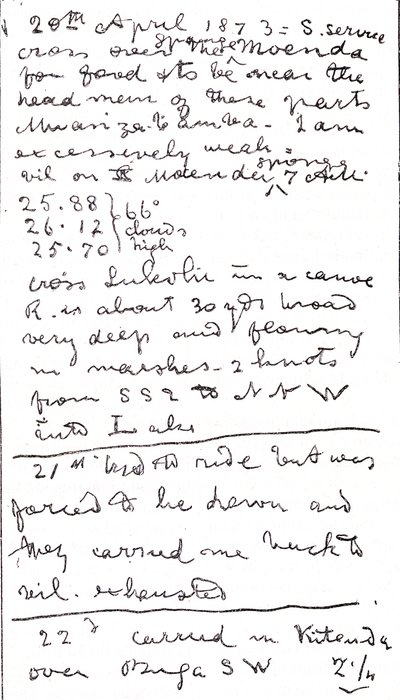 20th April 1873 = S. service
cross over the sponge Moenda
for food & to be near the
head men of these parts
Moanzambamba. I am
excessively weak
vil on Moenda sponge 7 A.M.
25.88
26.12
25.70
66°
clouds
high
cross Lokolu in a canoe
R. is about 30 yds broad
very deep and flowing
in marshes - 2 knots
from SSE to NNW
into Lake
21st tried to ride but was
forced to lie down and
they carried me back to
vil. exhausted
22d carried in Kitanda
over Buga SW 2¼